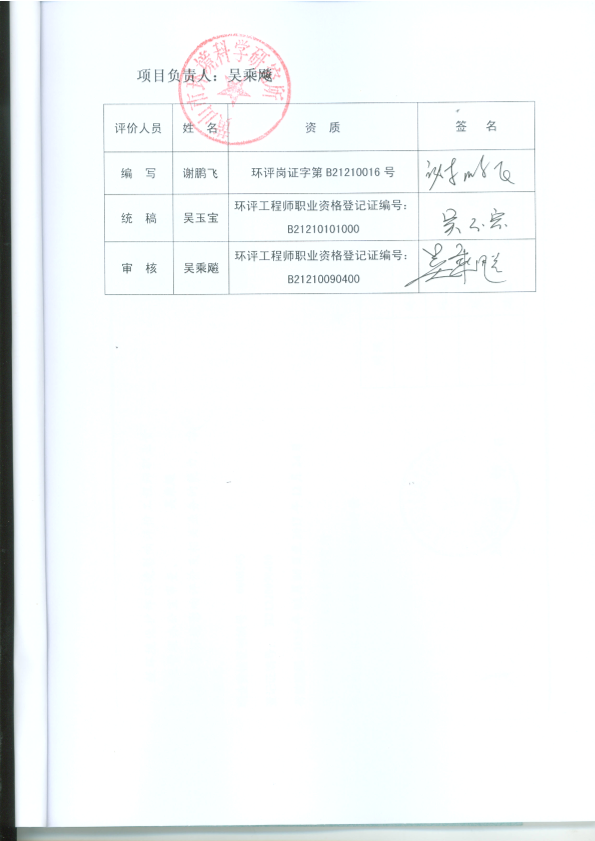 项目负责人：吴乘飚
黄山市环境科学研究所
评价人员 姓 名 资 质 签 名
编 写 谢鹏飞 环评岗证字第 B21210016 号 谢鹏飞
统 稿 吴玉宝 环评工程师职业资格登记证编号：
B21210101000 吴玉宝
审 核 吴乘飚 环评工程师职业资格登记证编号：
B21210090400 吴乘飚